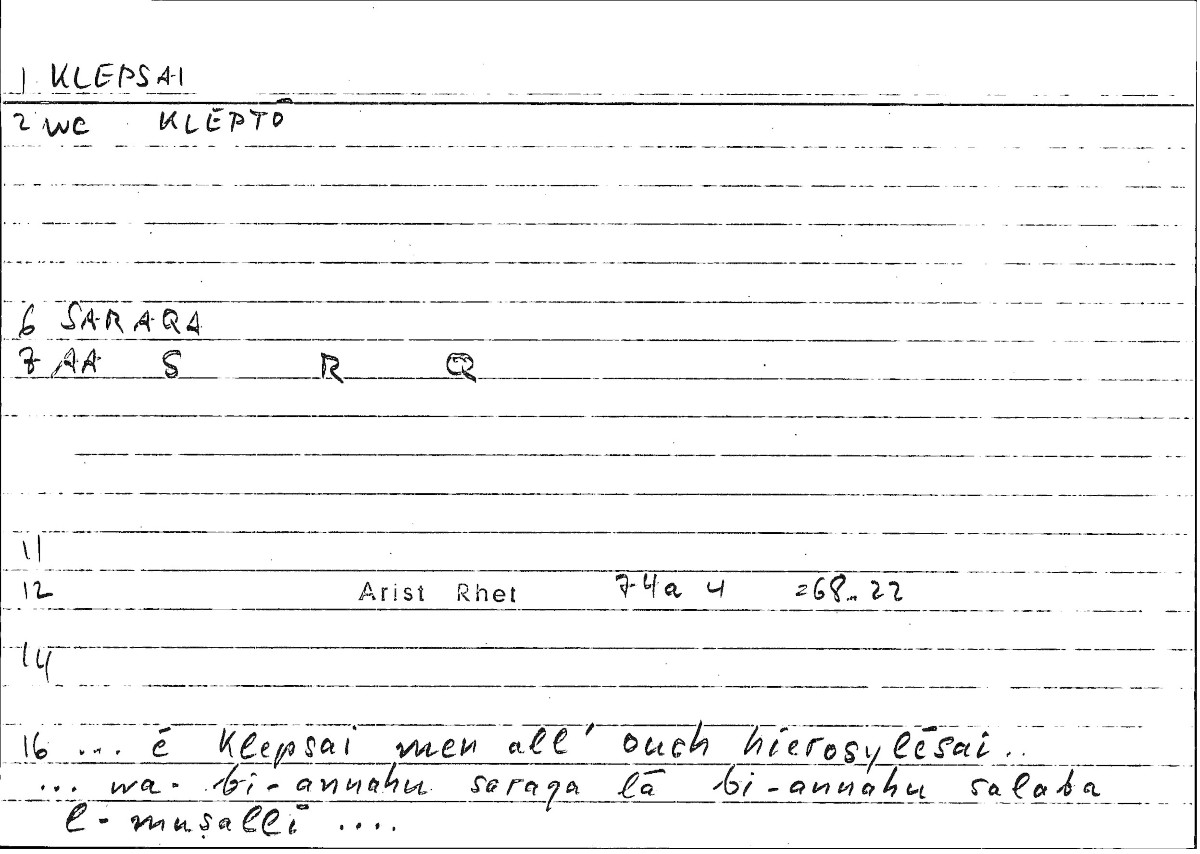 1 KLEPSAI
2 wc KLÉPTŌ
6 SARAQA
7 AA S R Q
11
12 Arist Rhet 74a 4 =68.. 22
14
16 ... ē Klepsai men all' ouch hierosylēsai..
... wa- bi-annahu saraqa lā bi-annahu salaba
l-muṣallī ....